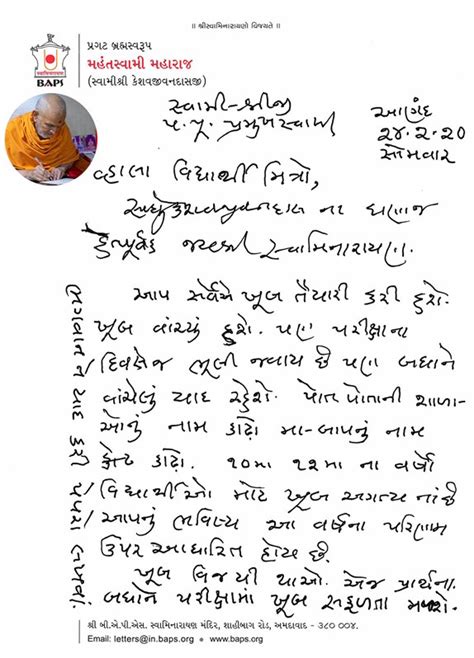 ॥ શ્રીસ્વામિનારાયણો વિજયતે ॥
પ્રગટ બ્રહ્મસ્વરૂપ
મહંતસ્વામી મહારાજ
(સ્વામીશ્રી કેશવજીવનદાસજી)
BAPS
સ્વામી-શ્રીજી
પ. પૂ. પ્રમુખસ્વામી
આણંદ
૨૪-૨-૨૦
સોમવાર
વ્હાલા વિદ્યાર્થી મિત્રો,
સાધુ કેશવજીવનદાસ ના ઘણાજ
હેતપૂર્વક જયશ્રી સ્વામિનારાયણ.
આપ સર્વેએ ખૂબ તૈયારી કરી હશે.
ખૂબ વાંચ્યું હશે. પણ પરીક્ષાના
દિવસેજ ભૂલી જવાય છે પણ બધાને
વાંચેલું યાદ રહેશે. પોત પોતાની શાળા-
ઓનું નામ કાઢો મા-બાપનું નામ
કાઢો. ૧૦મા ૧૨મા ના વર્ષો
વિદ્યાર્થીઓ માટે ખૂબ અગત્ય નાં છે
આપનું ભવિષ્ય આ વર્ષના પરિણામ
ઉપર આધારિત હોય છે.
ખૂબ વિજયી થાઓ. એજ પ્રાર્થના.
બધાને પરીક્ષામાં ખૂબ સફળતા મળશે.
ભગવાન ને યાદ કરી પેપર લખવાં.
શ્રી બી.એ.પી.એસ. સ્વામિનારાયણ મંદિર, શાહીબાગ રોડ, અમદાવાદ - ૩૮૦ ૦૦૪.
Email: letters@in.baps.org • www.baps.org